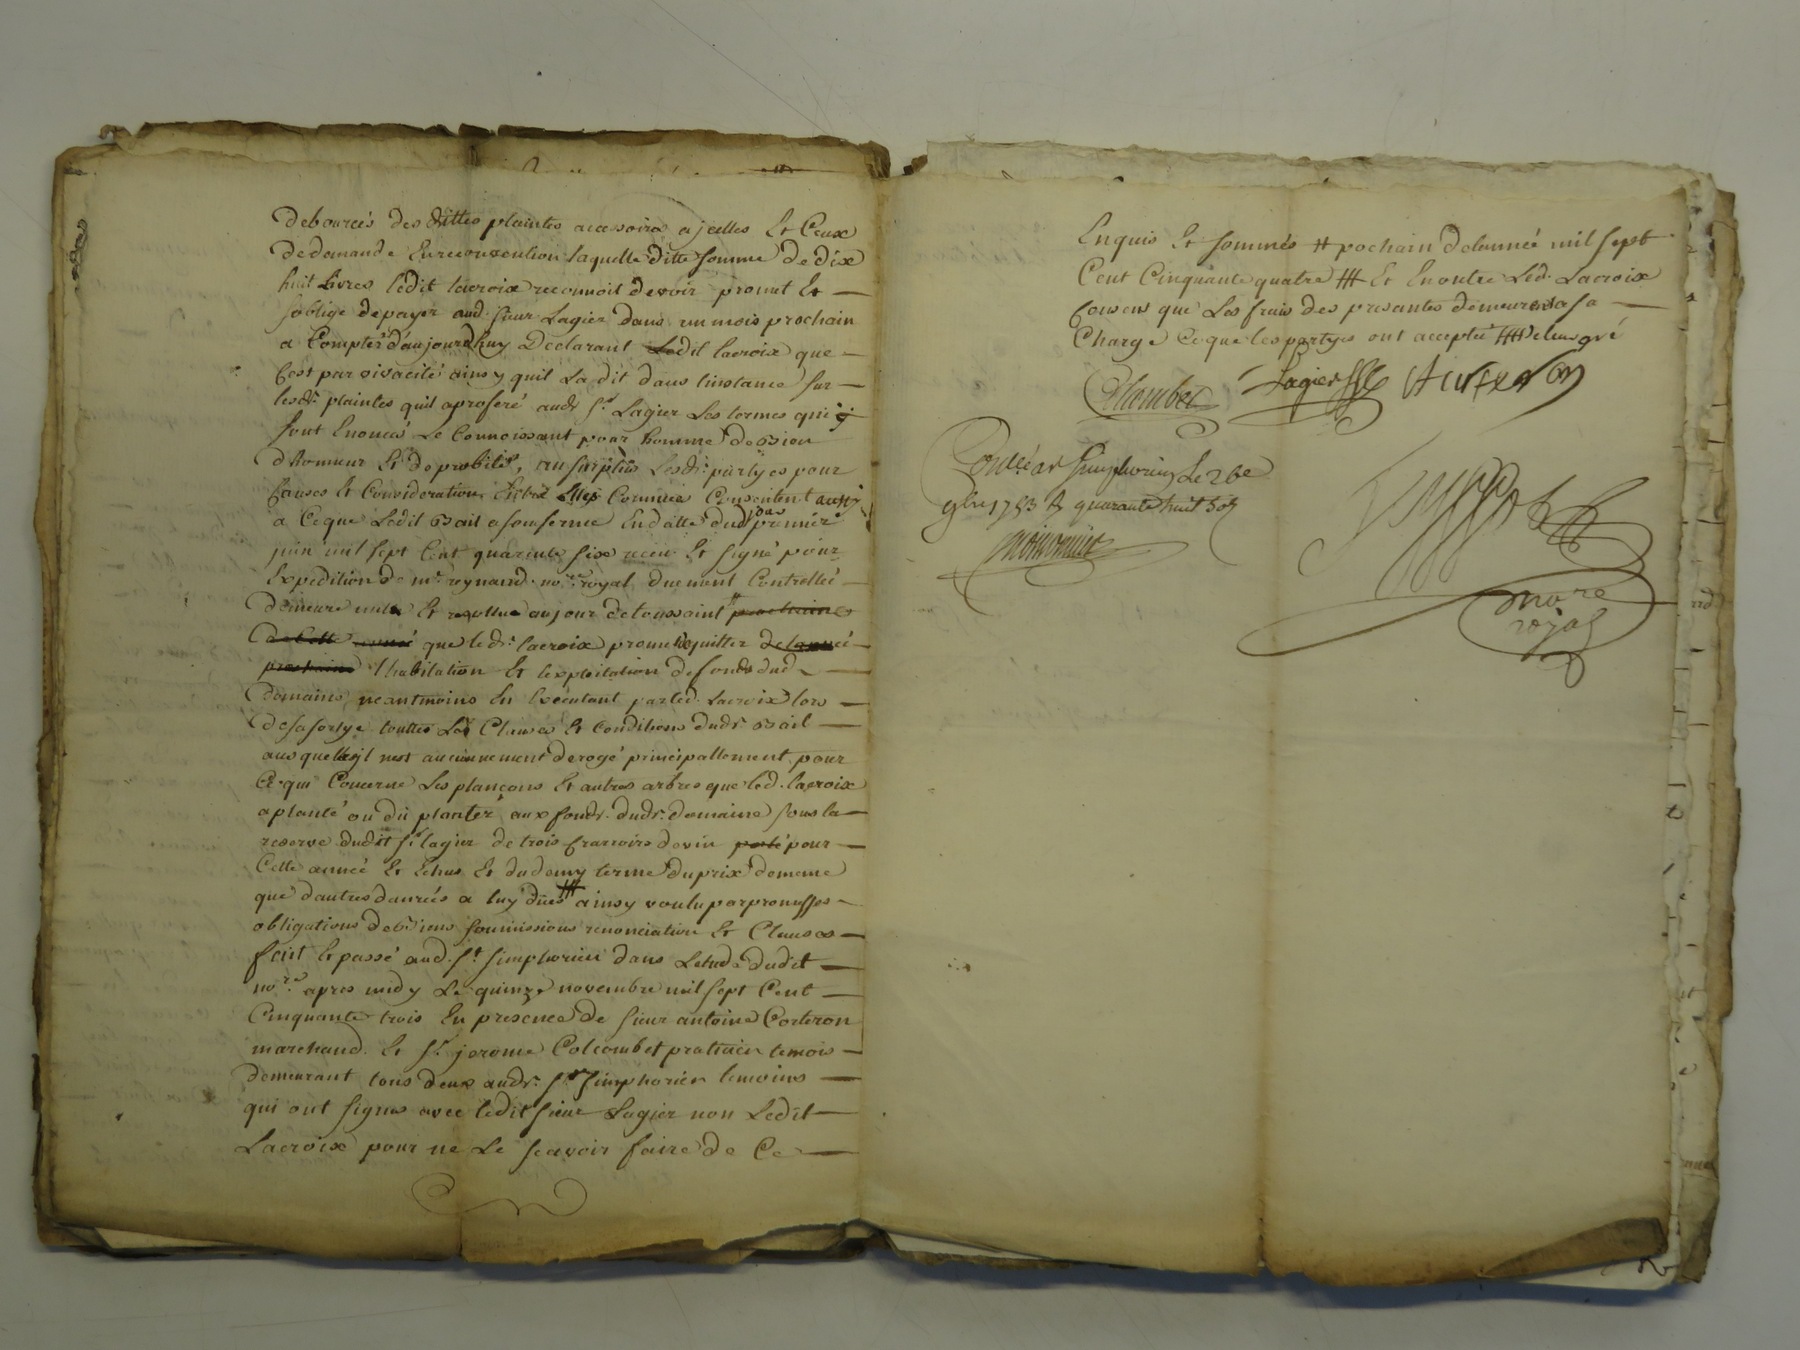 debources des dittes plaintes accesoire a jcelles Et Ceux
de demande En reconvention laquelle ditte somme de dix
huit Livres ledit lacroix reconnoit devoir promet Et
soblige de payer aud. sieur Lagier dans un mois prochain
a Compter daujourdhuy Declarant Ledit lacroix que
Cest par vivacité ainsy quil La dit dans linstance sur
lesds. plaintes quil a proferé audt sr. Lagier Les termes qui y
sont Enoncés Le Connoissant pour homme de bien
dhonneur Et de probité, au surplus Lesds. partyes pour
Causes Et Considerations Entre Elles Connües Consentent aussy
a Ceque Ledit Bail a son ferme En datte dud jour premier
juin mil sept Cent quarante six receu Et signé pour
Expedition de me. reynaud nore. royal duement Controllée
Demeure nulle Et resollue au jour de toussaint prochaine
de Cette année que ledt. lacroix promet quitter de lannée
prochaine lhabitation Et lexploitation de fonds dud
Domaine neantmoins En Executant par led. Lacroix lors
de sa sortye touttes Les Clauses Et Conditions dudt Bail
ausquelles jl nest aucunement derogé principallement pour
Ce qui Concerne Les plançons Et autres arbres que led. lacroix
a planté ou dû planter aux fonds. dudt. domaine sous la
reserve dudit sr. lagier de trois de vin porté pour
Cette année Et Echus Et du demy terme du prix de meme
que dautres danrées a luy dües # ainsy voulu par promesses
obligations de Biens soumissions renonciation Et Clauses
fait Et passé aud. st. simphorien dans Letude dudit
nore. apres midy Le quinze novembre mil sept Cent
Cinquante trois En presence de sieur antoine Corteron
marchand. Et sr. jerome Colcombet praticien temoins
demeurant tous deux audt. st. simphorien temoins
qui ont signés avec ledit sieur Lagier non Ledit
Lacroix pour ne Le scavoir faire de Ce
Enquis Et sommés # prochain de lannée mil sept
Cent Cinquante quatre # Et En outre Led. Lacroix
Consens que Les frais des presantes demeurent a sa
Charge Ce que les partyes ont accepté # de leur gré
Colcombet Lagier Corteron
Conllé a st simphorien Le 26e
9bre 1753 R quarante huit sols
nore
royal